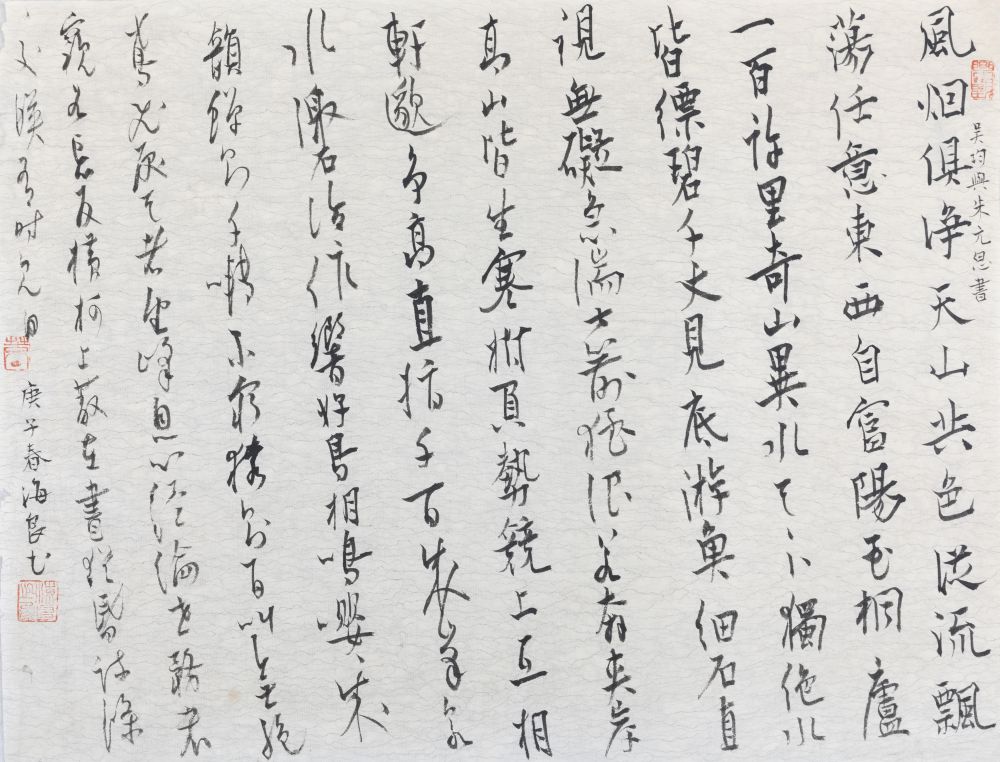 吴均與朱元思書
風烟俱净天山共色從流飄
蕩任意東西自富陽至桐廬
一百许里奇山異水天下獨絶水
皆縹碧千丈見底游魚細石直
視無礙急湍甚箭猛浪若奔夹岸
高山皆生寒樹負勢競上互相
軒邈争高直指千百成峯泉
水激石泠作響好鳥相鳴嚶々成
韻蟬則千囀不窮猿則百叫無絶
鳶飛戾天者望峰息心經綸世務者
窺谷忘反横柯上蔽在晝猶昏疏條
交映有時見日
庚子春海良书